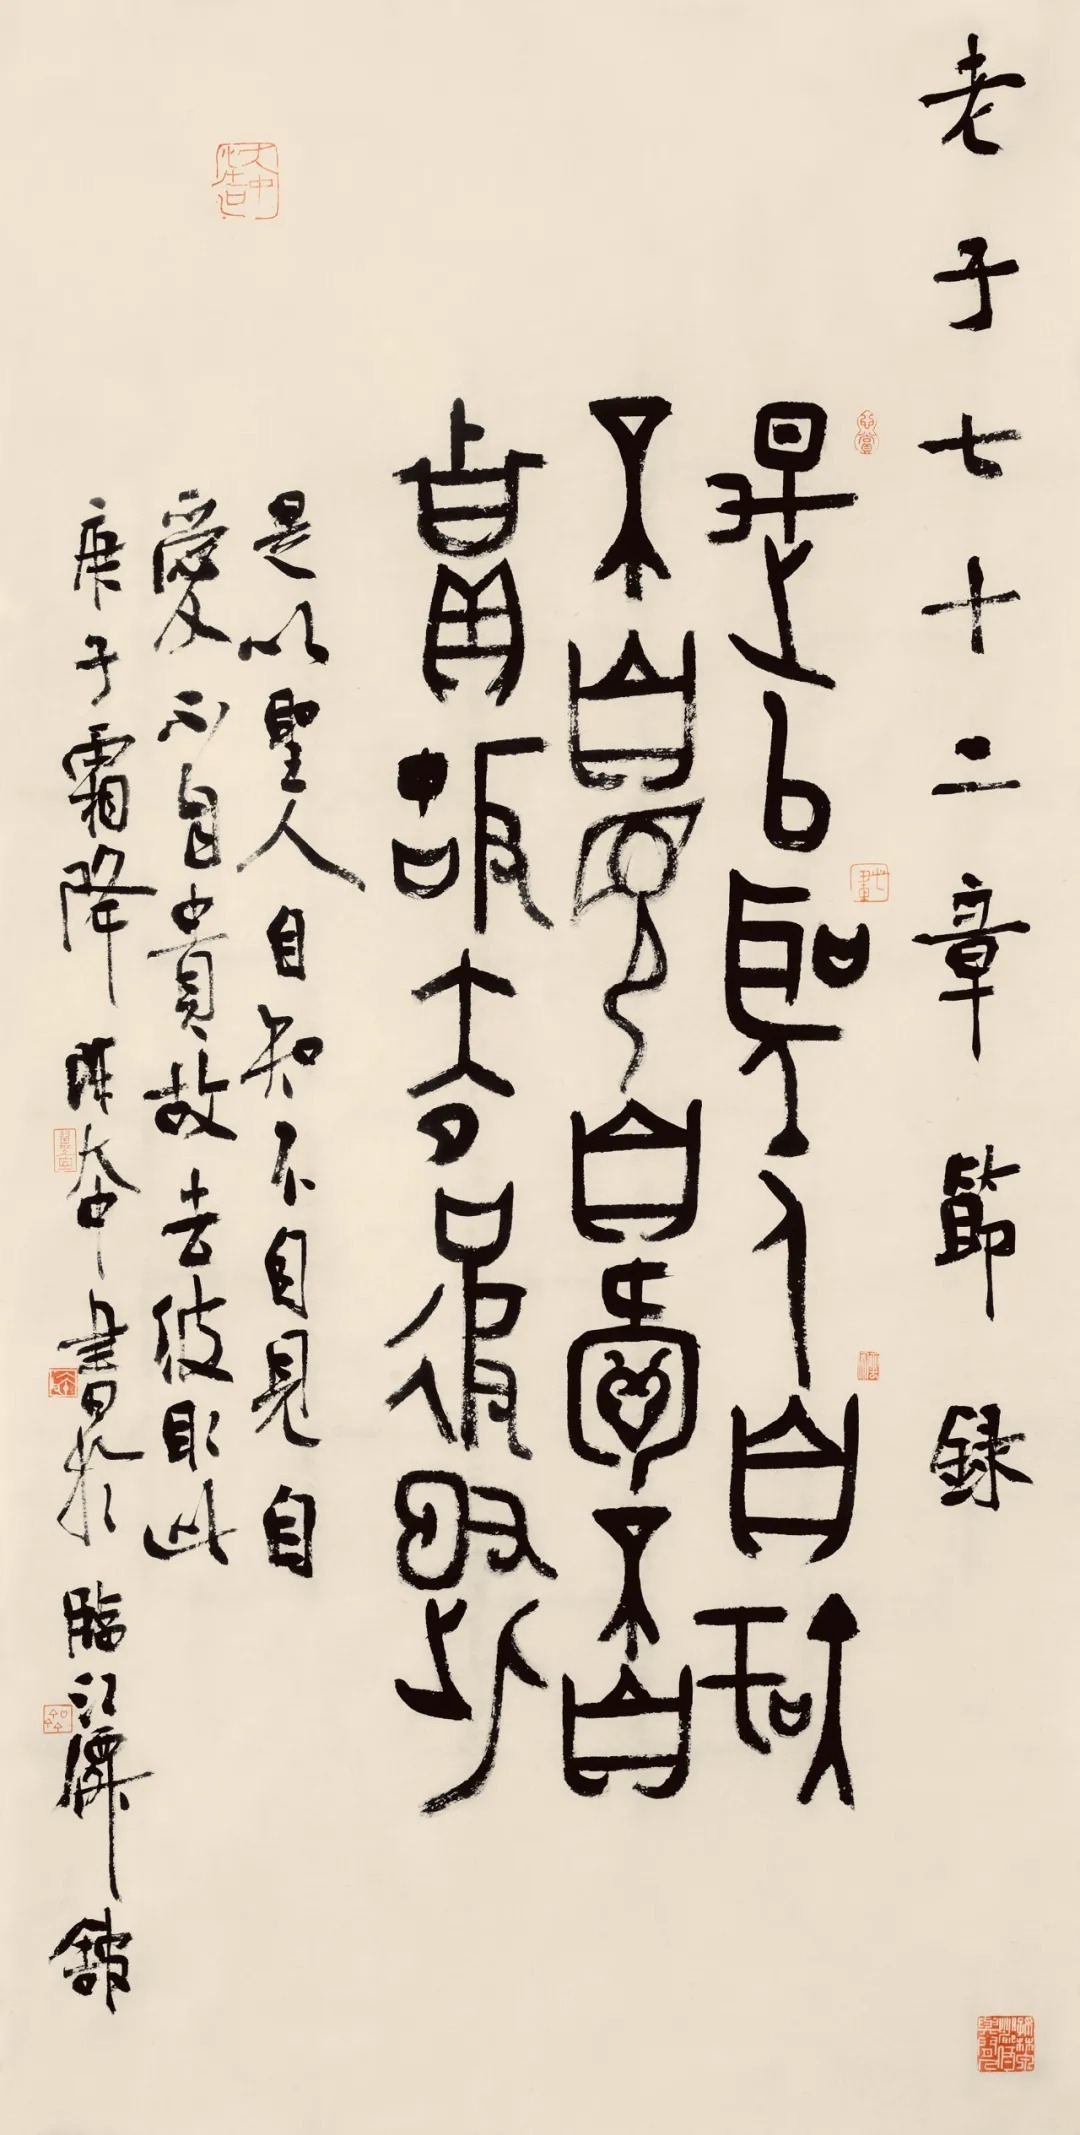 老子七十二章節録
是以聖人自知
不自見自愛不自
貴故去彼取此
是以聖人自知不自見自
愛不自貴故去彼取此
庚子霜降陳大中書於臨江舘